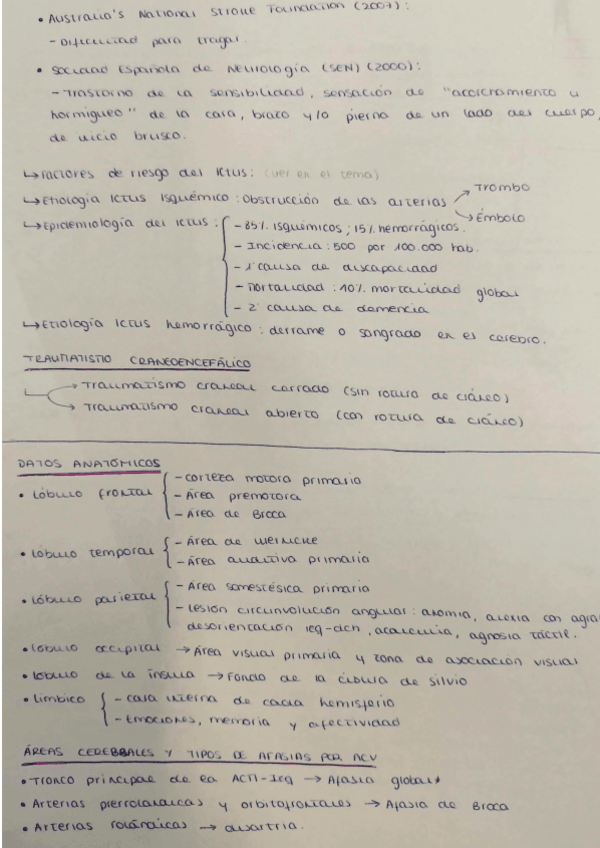 • Australia's National Stroke Foundation (2007):
- Dificultad para tragar.
• Sociedad Española de Neurología (SEN) (2000):
- Trastorno de la sensibilidad, sensación de "acorchamiento u
hormigueo" de la cara, brazo y/o pierna de un lado del cuerpo,
de inicio brusco.
↳ Factores de riesgo del Ictus: (ver en el tema)
↳ Etiología Ictus Isquémico: obstrucción de las arterias → Trombo
→ Émbolo
↳ Epidemiología del Ictus: - 85% isquémicos; 15% hemorrágicos.
- Incidencia: 500 por 100.000 hab.
- 1ª causa de discapacidad
- Mortalidad: 10% mortalidad global
- 2ª causa de demencia
↳ Etiología Ictus hemorrágico: derrame o sangrado en el cerebro.
TRAUMATISMO CRANEOENCEFÁLICO
→ Traumatismo craneal cerrado (sin rotura de cráneo)
→ Traumatismo craneal abierto (con rotura de cráneo)
DATOS ANATÓMICOS
• Lóbulo frontal - corteza motora primaria
- Área premotora
- Área de Broca
• Lóbulo temporal - Área de Wernicke
- Área auditiva primaria
• Lóbulo parietal - Área somestésica primaria
- Lesión circunvolución angular: anomia, alexia con agra
desorientación izq-dch, acalculia, agnosia táctil.
• Lóbulo occipital → Área visual primaria y zona de asociación visual
• Lóbulo de la ínsula → Fondo de la cisura de silvio
• Límbico - cara interna de cada hemisferio
- Emociones, memoria y afectividad
ÁREAS CEREBRALES Y TIPOS DE AFASIAS POR ACV
• Tronco principal de la ACM-Izq → Afasia global
• Arterias prerrolándicas y orbitofrontales → Afasia de Broca
• Arterias rolándicas → disartria.